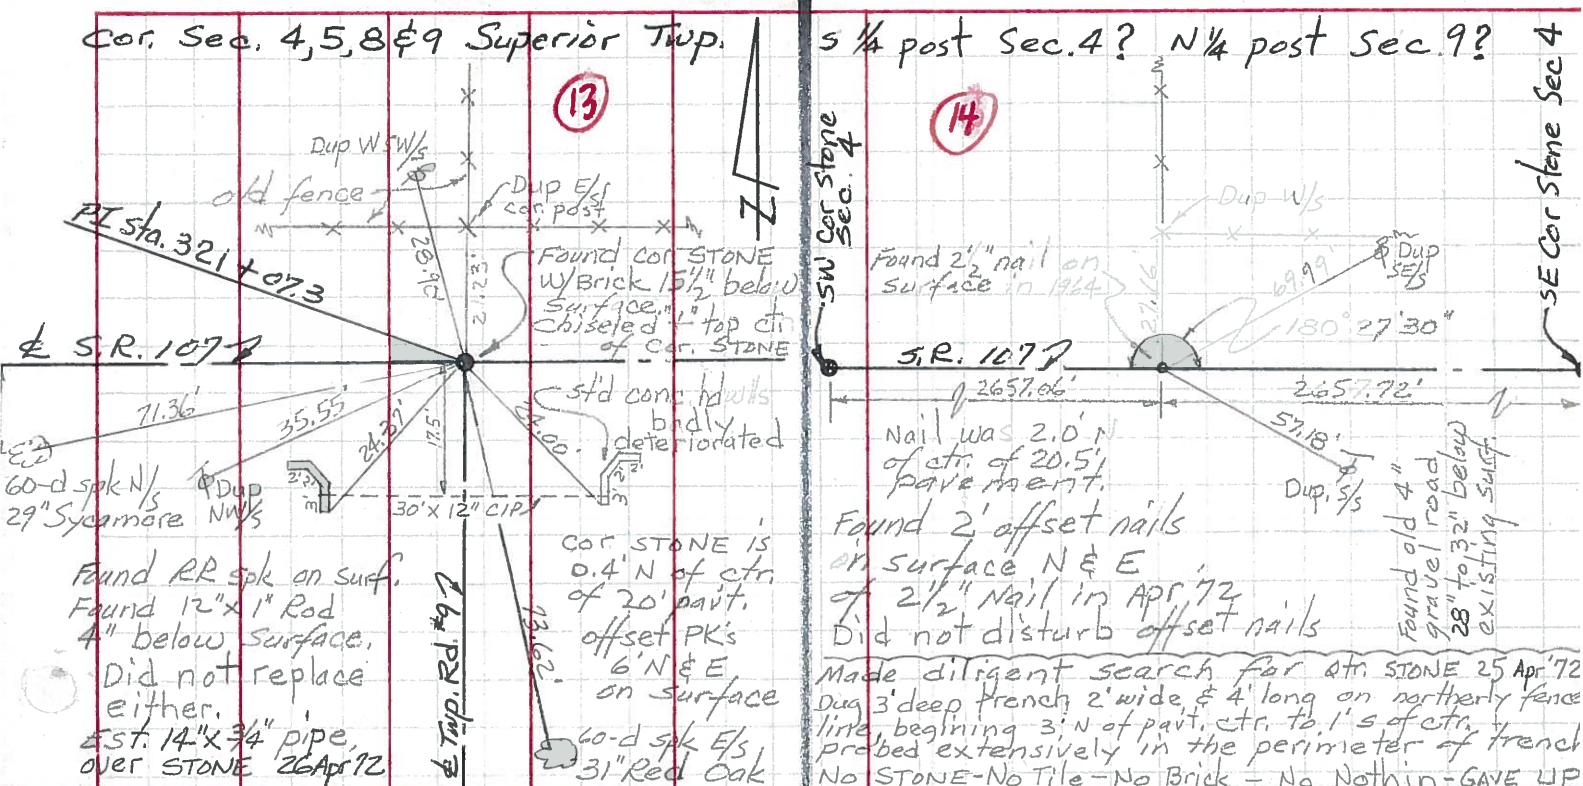 Cor. Sec. 4,5,8 & 9 Superior Twp.
13
Dup W SW/s
old fence
Dup E/s
cor. post
PI sta. 321 + 07.3
28.92
21.23'
Found cor STONE
W/Brick 15½" below
surface, 1"
chiseled + top ctr.
of Cor. STONE
℄ S.R. 107
71.36'
35.55'
24.37'
17.5'
std conc hdwlls
badly
deteriorated
60-d spk N/s
29" Sycamore
Dup
NW/s
2'
3'
30' X 12" CIP
3'
2'
Found RR spk on surf.
Found 12" x 1" Rod
4" below surface.
Did not replace
either.
Est. 14" x ¾" pipe,
over STONE 26 Apr 72
℄ Twp. Rd. #9
73.62'
cor STONE is
0.4' N of ctr.
of 20' pavt.
offset PK's
6' N & E
on surface
60-d spk E/s
31" Red Oak
S ¼ post Sec. 4? N ¼ post Sec. 9?
14
SW Cor Stone
Sec. 4
SE Cor Stone Sec 4
Dup W/s
Found 2½" nail on
surface in 1964
27.16'
69.99'
Dup
SE/s
180° 27' 30"
S.R. 107
2657.06'
2657.72'
57.18'
Dup. S/s
Nail was 2.0' N
of ctr. of 20.5'
pavement.
Found 2' offset nails
on surface N & E
of 2½" Nail in Apr. '72
Did not disturb offset nails
Found old 4"
gravel road
28" to 32" below
existing surf.
Made diligent search for Qtr. STONE 25 Apr '72
Dug 3' deep trench 2' wide, & 4' long on northerly fence
line, begining 3' N of pavt. ctr. to 1' s of ctr. &
probed extensively in the perimeter of trench
No STONE - No Tile - No Brick - No Nothin - GAVE UP